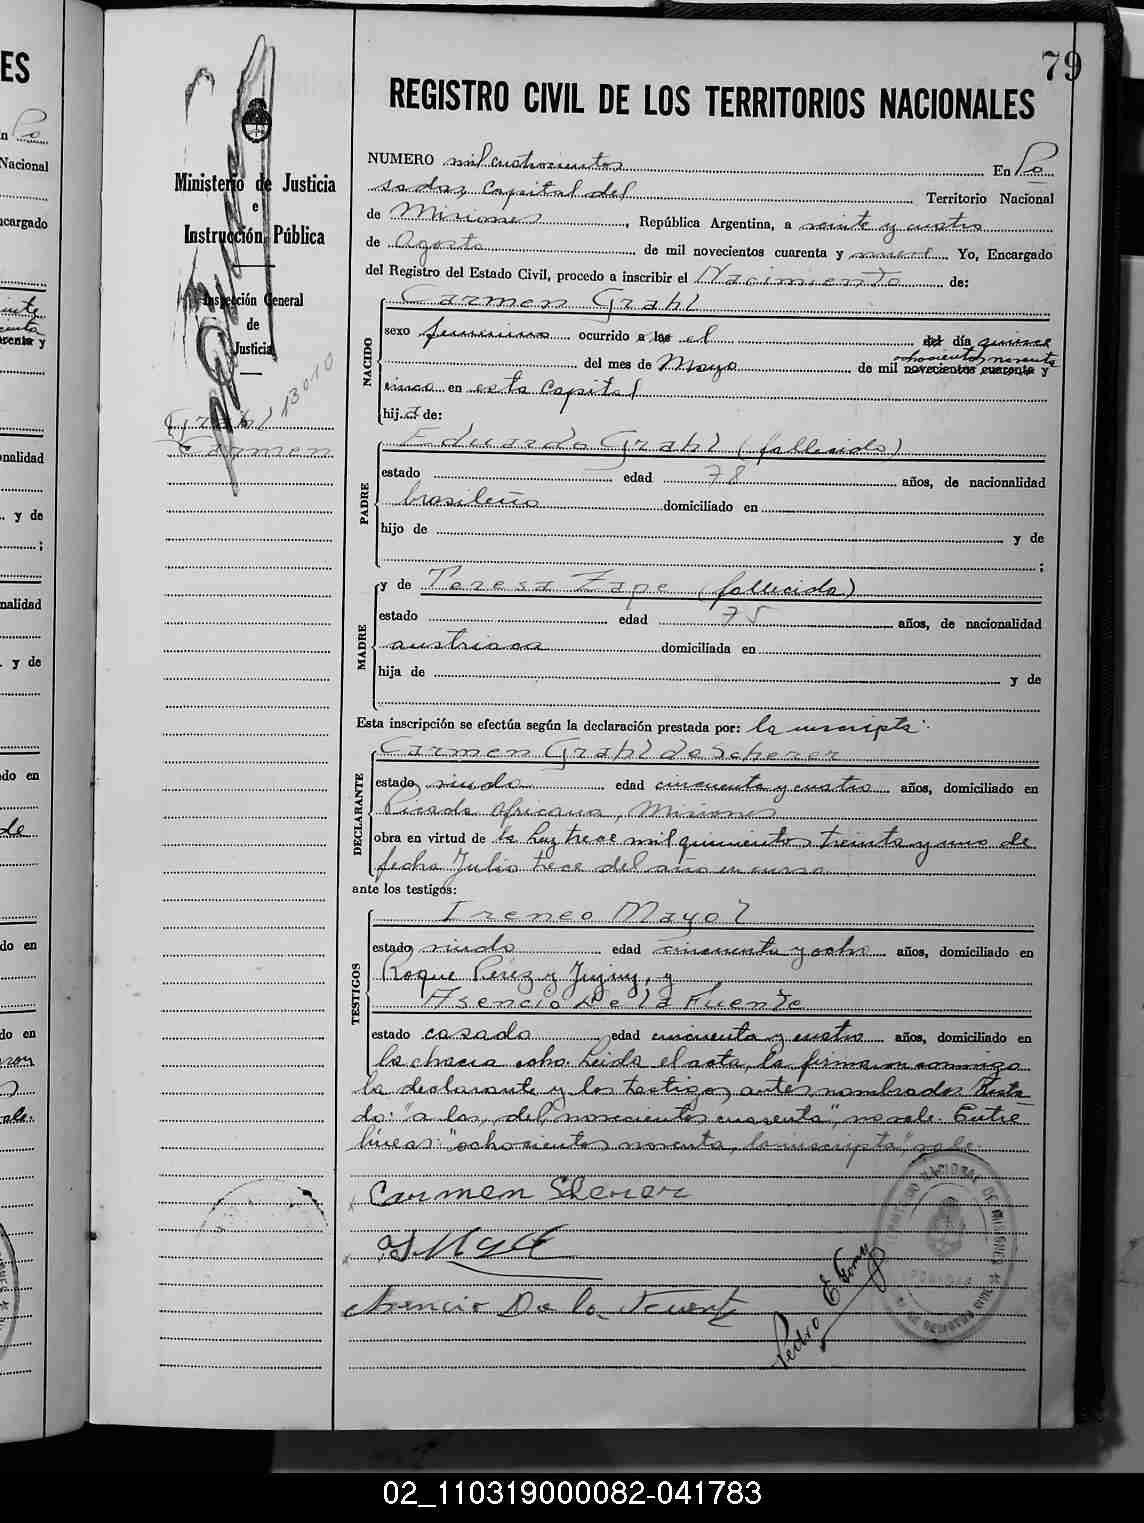 79
REGISTRO CIVIL DE LOS TERRITORIOS NACIONALES
Ministerio de Justicia
e
Instrucción Pública
Inspección General
de
Justicia
13010
Grahl
Carmen
NUMERO mil cuatrocientos En Po
sadas, Capital del Territorio Nacional
de Misiones, República Argentina, a veinte y cuatro
de Agosto de mil novecientos cuarenta y nueve. Yo, Encargado
del Registro del Estado Civil, procedo a inscribir el Nacimiento de:
NACIDO
Carmen Grahl
sexo femenino ocurrido a las el del día quince
ochocientos noventa
del mes de Mayo de mil novecientos cuarenta y
cinco en esta Capital
hija de:
PADRE
Eduardo Grahl (fallecido)
estado edad 78 años, de nacionalidad
brasileño domiciliado en
hijo de y de
;
MADRE
y de Teresa Zape (fallecida)
estado edad 75 años, de nacionalidad
austriaca domiciliada en
hija de y de
Esta inscripción se efectúa según la declaración prestada por: la inscripta.
DECLARANTE
Carmen Grahl de Scherer
estado viuda edad cincuenta y cuatro años, domiciliado en
Picada Africana, Misiones
obra en virtud de la Ley trece mil quinientos treinta y uno de
fecha Julio trece del año en curso
ante los testigos:
TESTIGOS
Ireneo Mayol
estado viudo edad cincuenta y ocho años, domiciliado en
Roque Pérez y Jujuy, y
Asencio De la Fuente
estado casado edad cincuenta y cuatro años, domiciliado en
la chacra ocho. Leida el acta, la firmaron conmigo
la declarante y los testigos antes nombrados. Testa
do: "a las, del, novecientos cuarenta", no vale. Entre
líneas: "ochocientos noventa, la inscripta", vale.
Carmen Scherer
Asencio De la Fuente
Pedro E Gomez
02_110319000082-041783